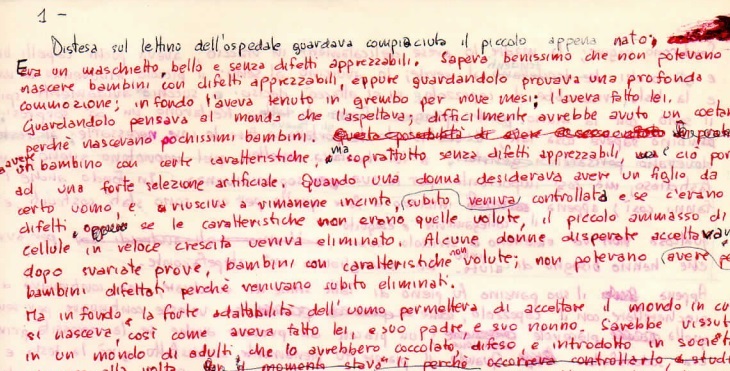 1 -
Distesa sul lettino dell'ospedale guardava compiaciuta il piccolo appena nato;
Era un maschietto, bello e senza difetti apprezzabili. Sapeva benissimo che non potevano
nascere bambini con difetti apprezzabili, eppure guardandolo provava una profonda
commozione; in fondo l'aveva tenuto in grembo per nove mesi; l'aveva fatto lei.
Guardandolo pensava al mondo che l'aspettava; difficilmente avrebbe avuto un coetan
perchè nascevano pochissimi bambini. Questa possibilità di avere
avere un bambino con certe caratteristiche, ma soprattutto senza difetti apprezzabili, ciò por
ad una forte selezione artificiale. Quando una donna desiderava avere un figlio da
certo uomo, e riusciva a rimanere incinta, subito veniva controllata e se c'erano
difetti, oppure se le caratteristiche non erano quelle volute, il piccolo ammasso di
cellule in veloce crescita veniva eliminato. Alcune donne disperate accettava
dopo svariate prove, bambini con caratteristiche non volute; non potevano avere pe
bambini difettati perchè venivano subito eliminati.
Ma in fondo, la forte adattabilità dell'uomo permetteva di accettare il mondo in cu
si nasceva, così come aveva fatto lei, e suo padre, e suo nonno. Sarebbe vissut
in un mondo di adulti, che lo avrebbero coccolato, difeso e introdotto in societ
alla volta. momento stava lì perchè occorreva controllarlo, e stud